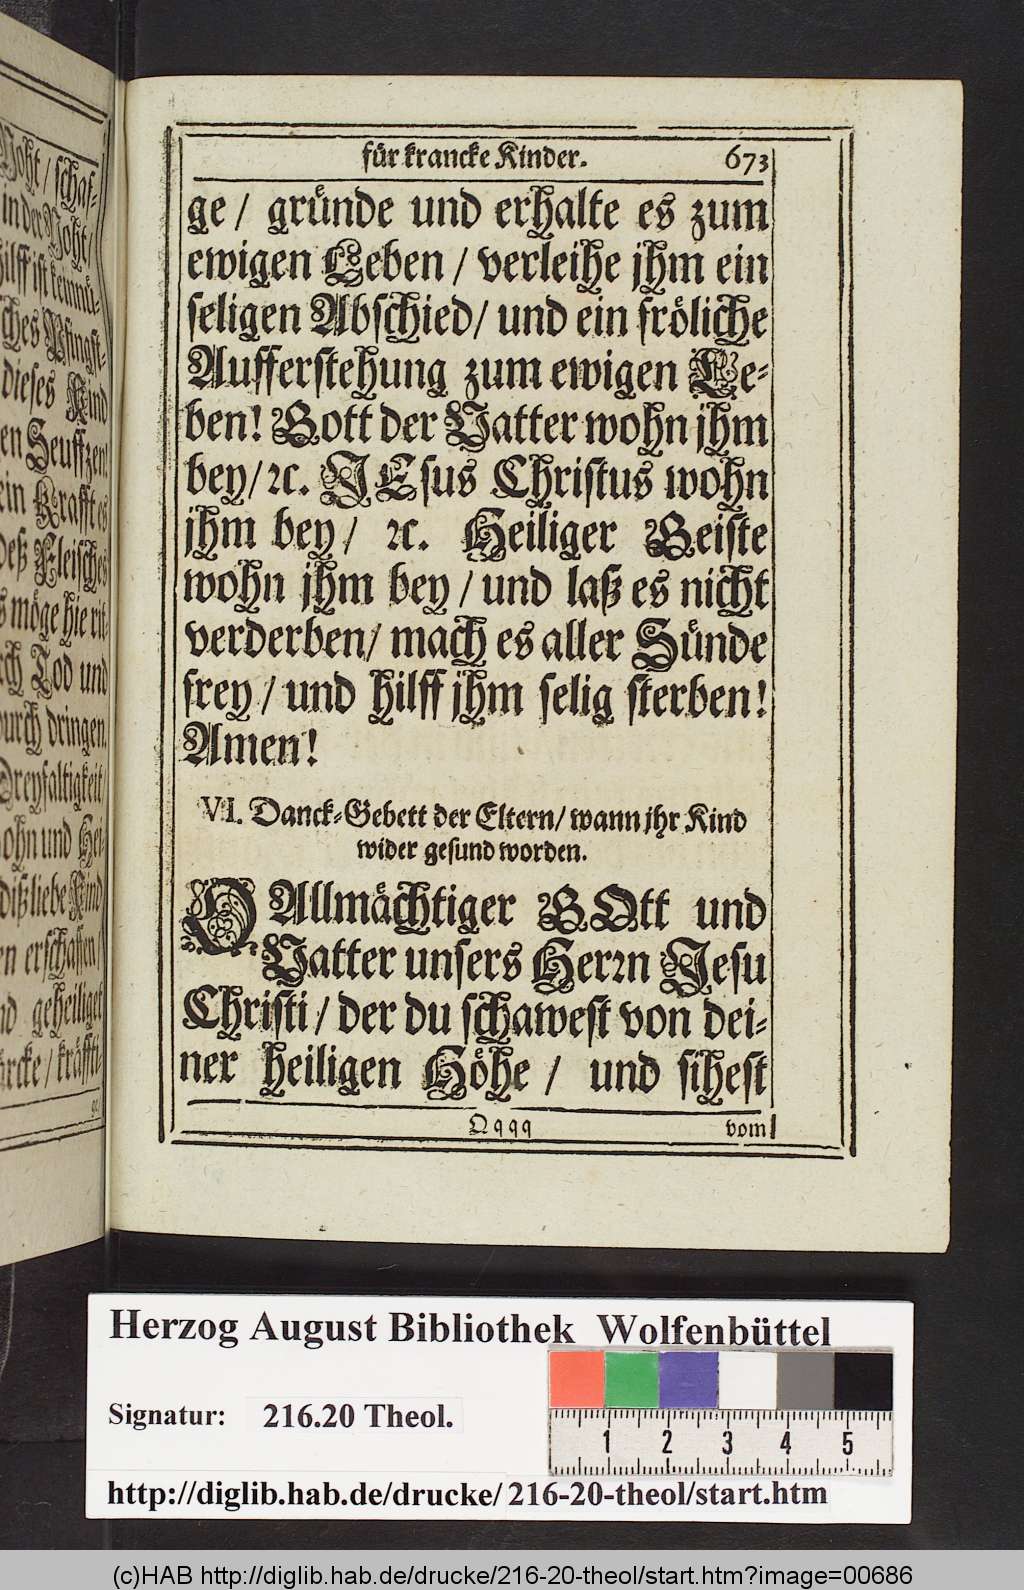 Noht / schaf-
in der Noht /
hilff ist kein nü-
ches Pfingst-
dieses Kind
en Seufftzen!
ein Krafft es
deß Fleisches
möge hie rit-
rch Tod und
durch dringen.
Dreyfaltigkeit /
ohn und Hei-
diß liebe Kind
en erschaffen /
nd geheiliget
ärcke / kräffti-
ge
für krancke Kinder. 673
ge / gründe und erhalte es zum
ewigen Leben / verleihe jhm ein
seligen Abschied / und ein fröliche
Aufferstehung zum ewigen Le-
ben! Gott der Vatter wohn jhm
bey / ꝛc. JEsus Christus wohn
jhm bey / ꝛc. Heiliger Geiste
wohn jhm bey / und laß es nicht
verderben / mach es aller Sünde
frey / und hilff jhm selig sterben!
Amen!
VI. Danck-Gebett der Eltern / wann jhr Kind
wider gesund worden.
O Allmächtiger GOtt und
Vatter unsers Herrn Jesu
Christi / der du schawest von dei-
ner heiligen Höhe / und sihest
Qqqq vom
Herzog August Bibliothek Wolfenbüttel
Signatur: 216.20 Theol.
1 2 3 4 5
http://diglib.hab.de/drucke/216-20-theol/start.htm
(c)HAB http://diglib.hab.de/drucke/216-20-theol/start.htm?image=00686